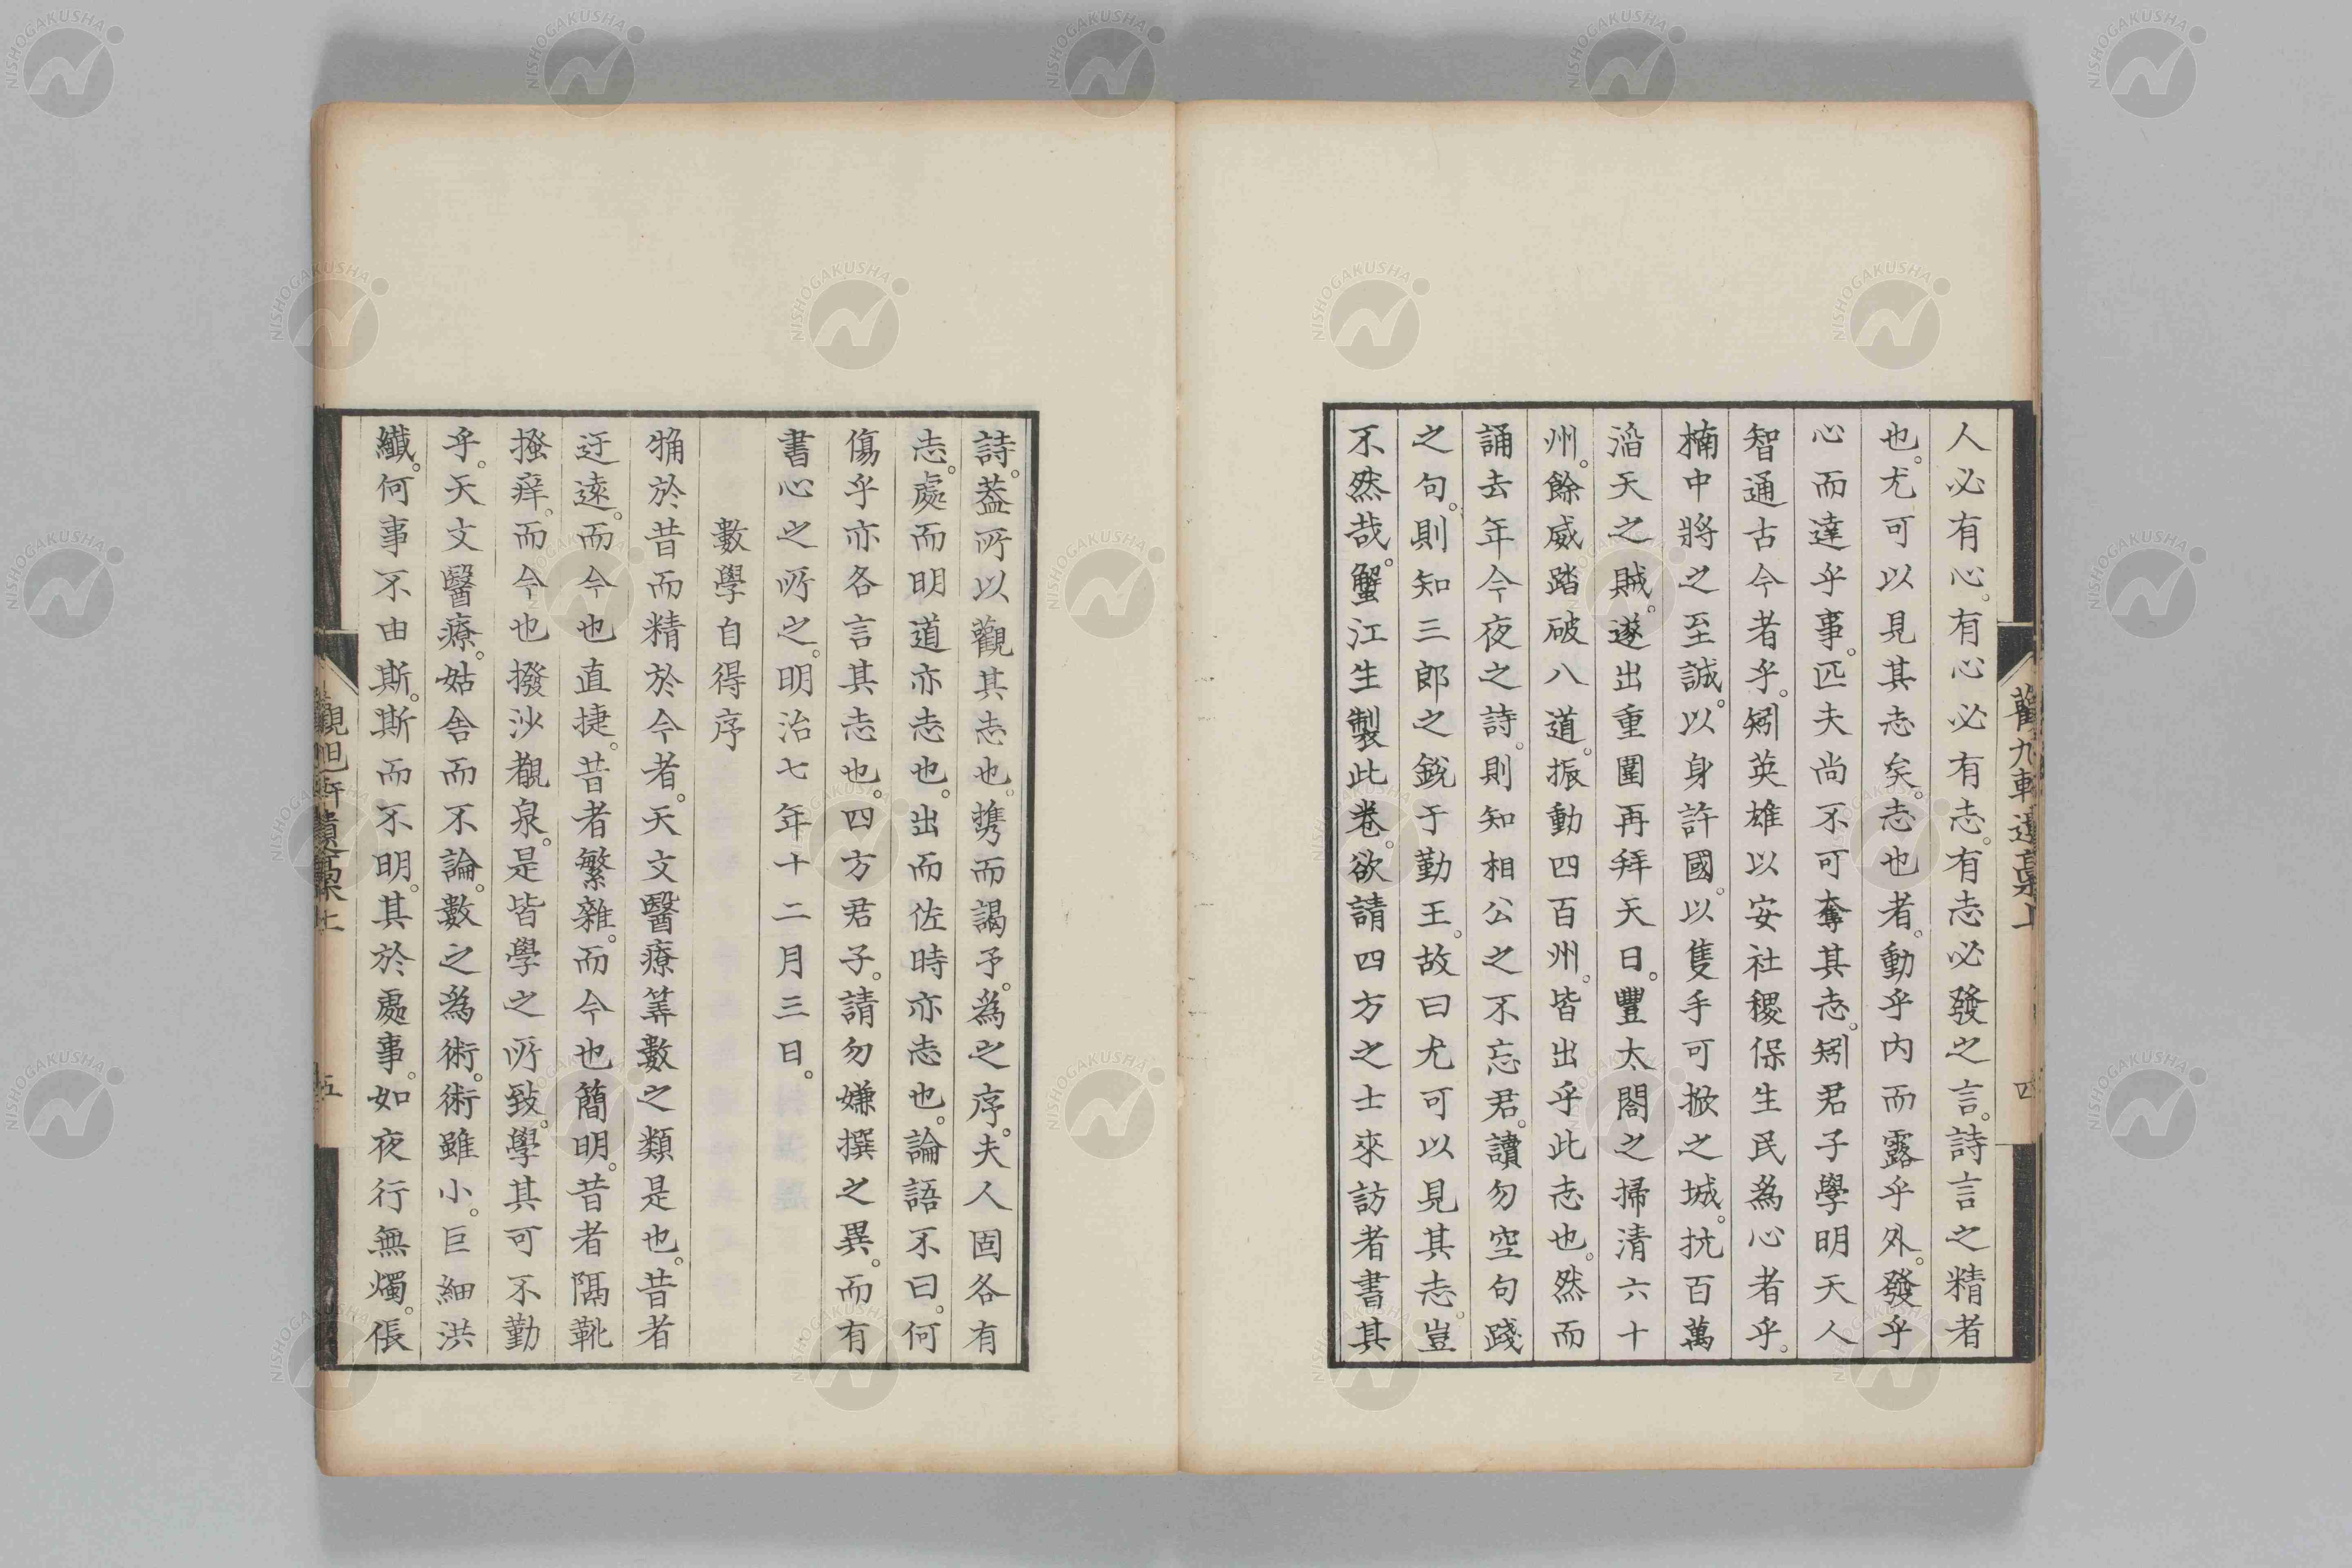 人必有心。有心必有志。有志必發之言。詩言之精者
也。尤可以見其志矣。志也者。動乎内而露乎外。發乎
心而達乎事。匹夫尚不可奪其志。矧君子學明天人
智通古今者乎。矧英雄以安社稷保生民爲心者乎。
楠中將之至誠。以身許國。以隻手可掀之城。抗百萬
滔天之賊。遂出重圍再拜天日。豐太閤之掃清六十
州。餘威踏破八道。振動四百州。皆出乎此志也。然而
誦去年今夜之詩。則知相公之不忘君。讀勿空句踐
之句。則知三郎之鋭于勤王。故曰尤可以見其志。豈
不然哉。蟹江生製此卷。欲請四方之士來訪者書其
詩。葢所以觀其志也。携而謁予。爲之序。夫人固各有
志。處而明道亦志也。出而佐時亦志也。論語不曰。何
傷乎亦各言其志也。四方君子。請勿嫌撰之異。而有
書心之所之。明治七年十二月三日。
數學自得序
觕於昔而精於今者。天文醫療筭數之類是也。昔者
迂遠。而今也直捷。昔者繁雜。而今也簡明。昔者隔靴
搔痒。而今也撥沙覩泉。是皆學之所致。學其可不勤
乎。天文醫療。姑舍而不論。數之爲術。術雖小。巨細洪
纖。何事不由斯。斯而不明。其於處事。如夜行無燭。倀